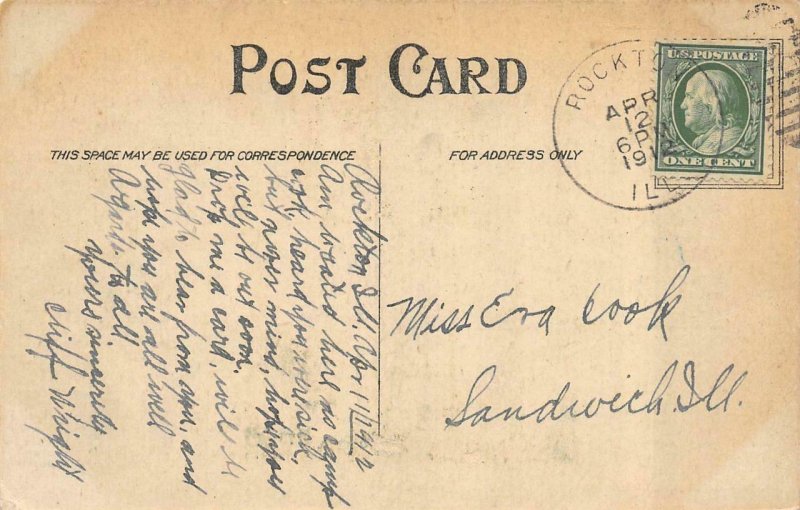 POST CARD
THIS SPACE MAY BE USED FOR CORRESPONDENCE
FOR ADDRESS ONLY
ROCKTON
APR
12
6 PM
1912
ILL
U.S. POSTAGE
ONE CENT
Rockton Ill. Apr 11/1912
Am located here as
heard you were sick,
but never mind, hope you
will be out soon.
Drop me a card, will be
glad to hear from you, and
hope you are all well
to all
yours sincerely
Cliff Wright
Miss Eva Cook
Sandwich. Ill.